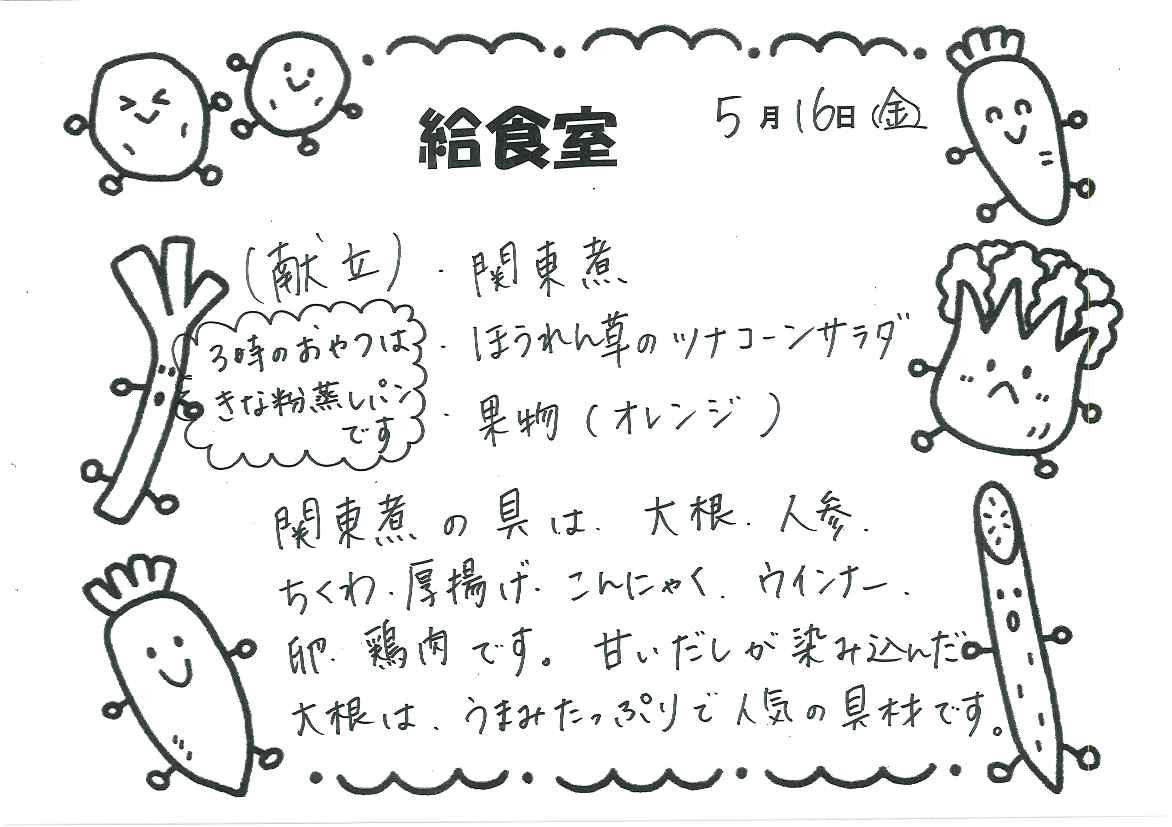 給食室
5月16日(金)
(献立)・関東煮
・ほうれん草のツナコーンサラダ
・果物(オレンジ)
3時のおやつは
きな粉蒸しパン
です
関東煮の具は、大根、人参、
ちくわ、厚揚げ、こんにゃく、ウインナー、
卵、鶏肉です。甘いだしが染み込んだ
大根は、うまみたっぷりで人気の具材です。